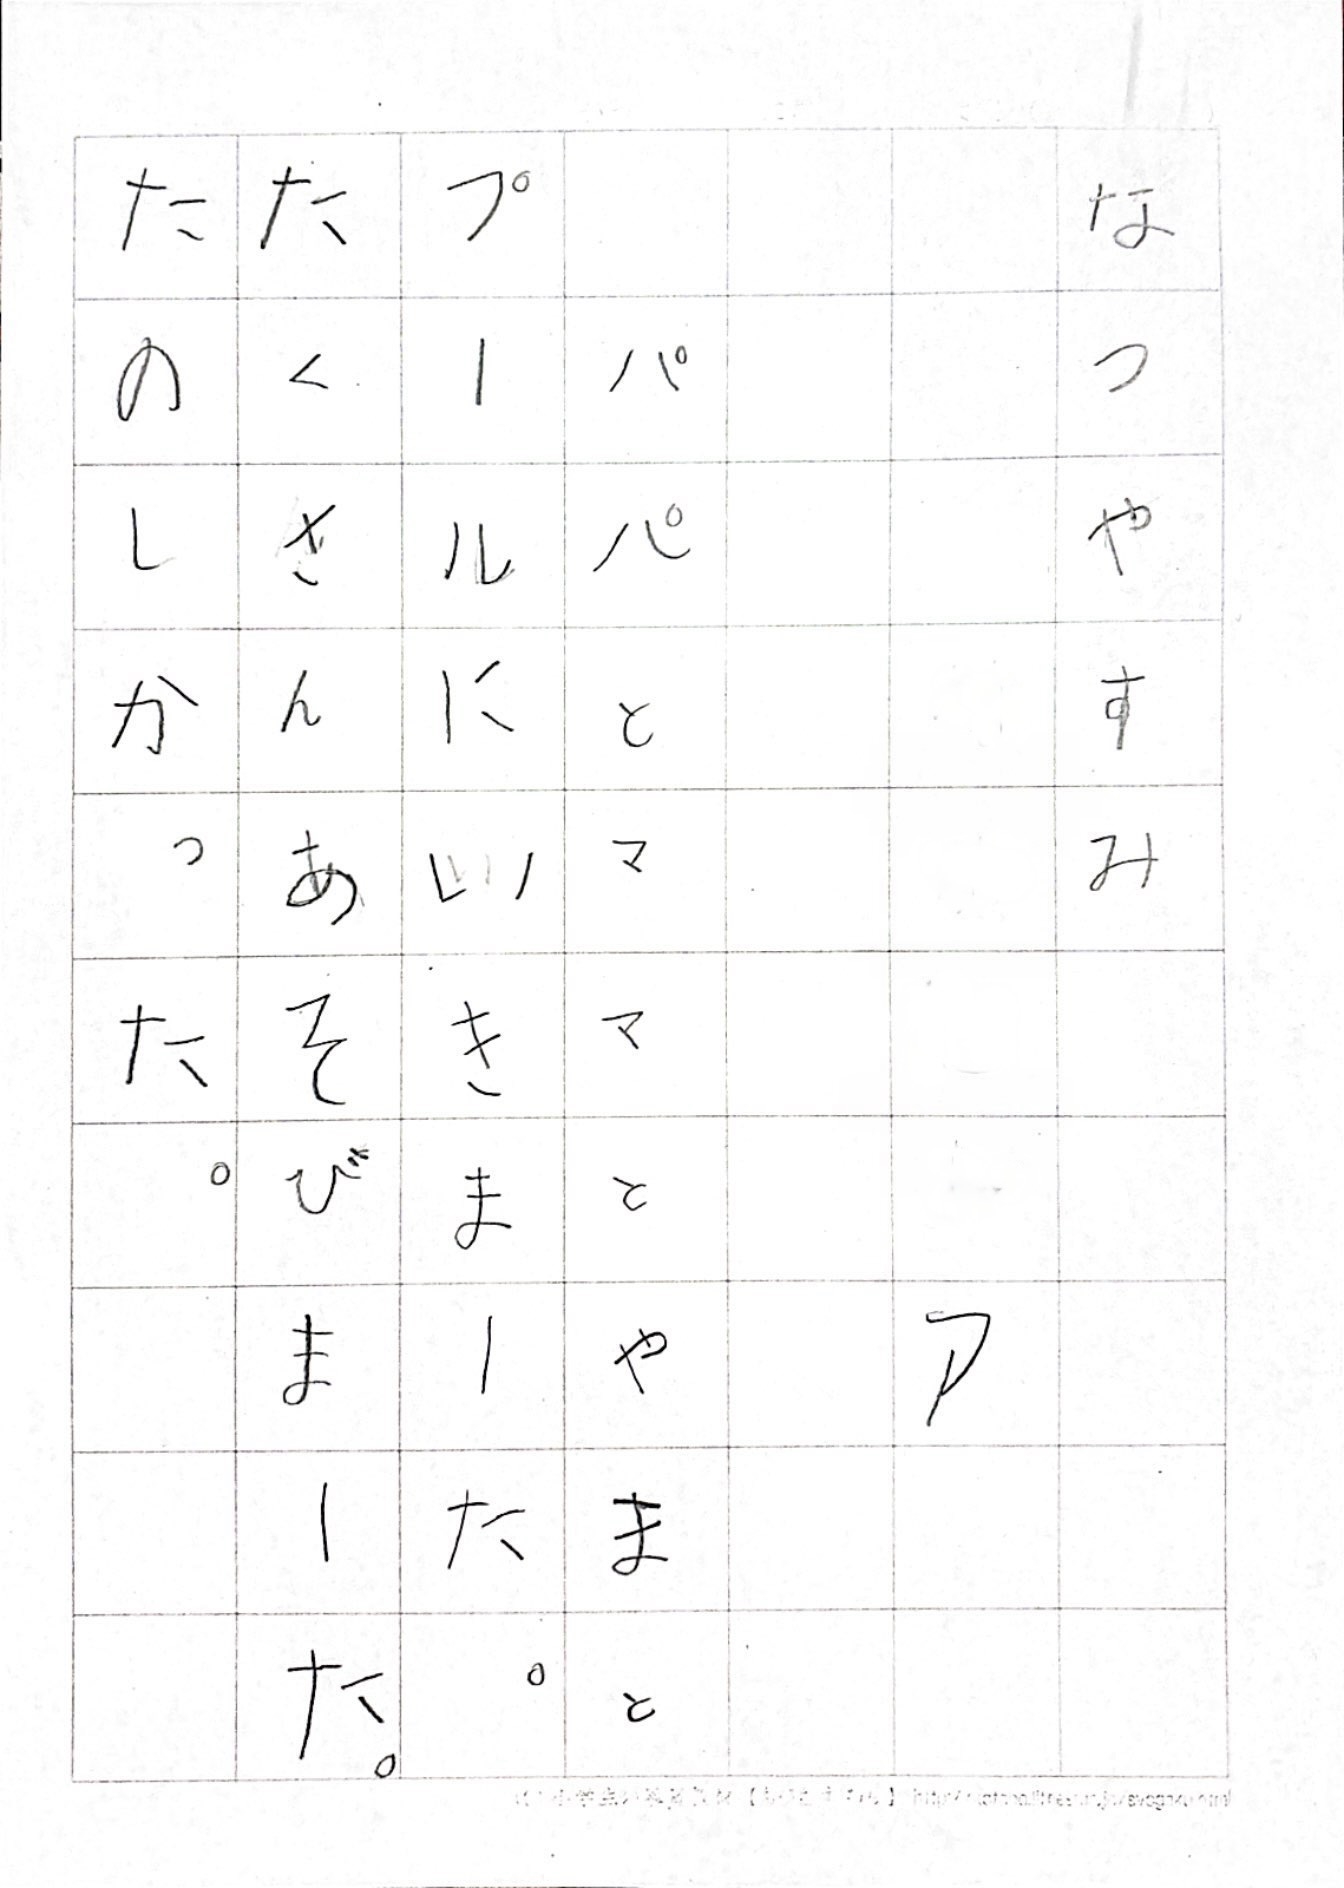 なつやすみ
ア
パパとママとやまと
プールにいきまーた。
たくさんあそびまーた。
たのしかった。